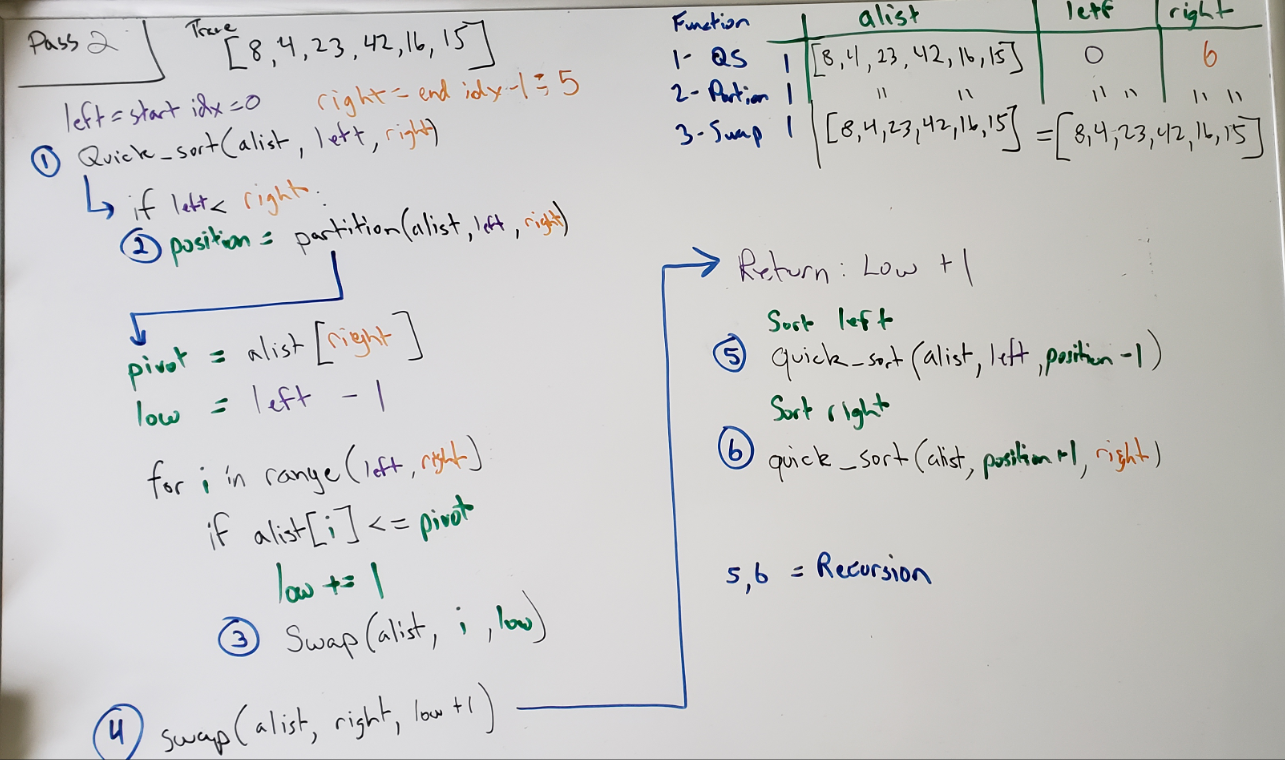 Pass 2
Trace
[8,4,23,42,16,15]
left = start idx = 0 right = end idx - 1 = 5
① Quick_sort(alist, left, right)
if left < right:
② position = partition(alist, left, right)
pivot = alist[right]
low = left - 1
for i in range(left, right)
if alist[i] <= pivot
low += 1
③ Swap(alist, i, low)
④ swap(alist, right, low +1)
Function alist left right
1- QS 1 [8,4,23,42,16,15] 0 6
2- Partion 1 " " " " " "
3- Swap 1 [8,4,23,42,16,15] = [8,4,23,42,16,15]
Return: Low +1
Sort left
⑤ quick_sort(alist, left, position -1)
Sort right
⑥ quick_sort(alist, position +1, right)
5,6 = Recursion